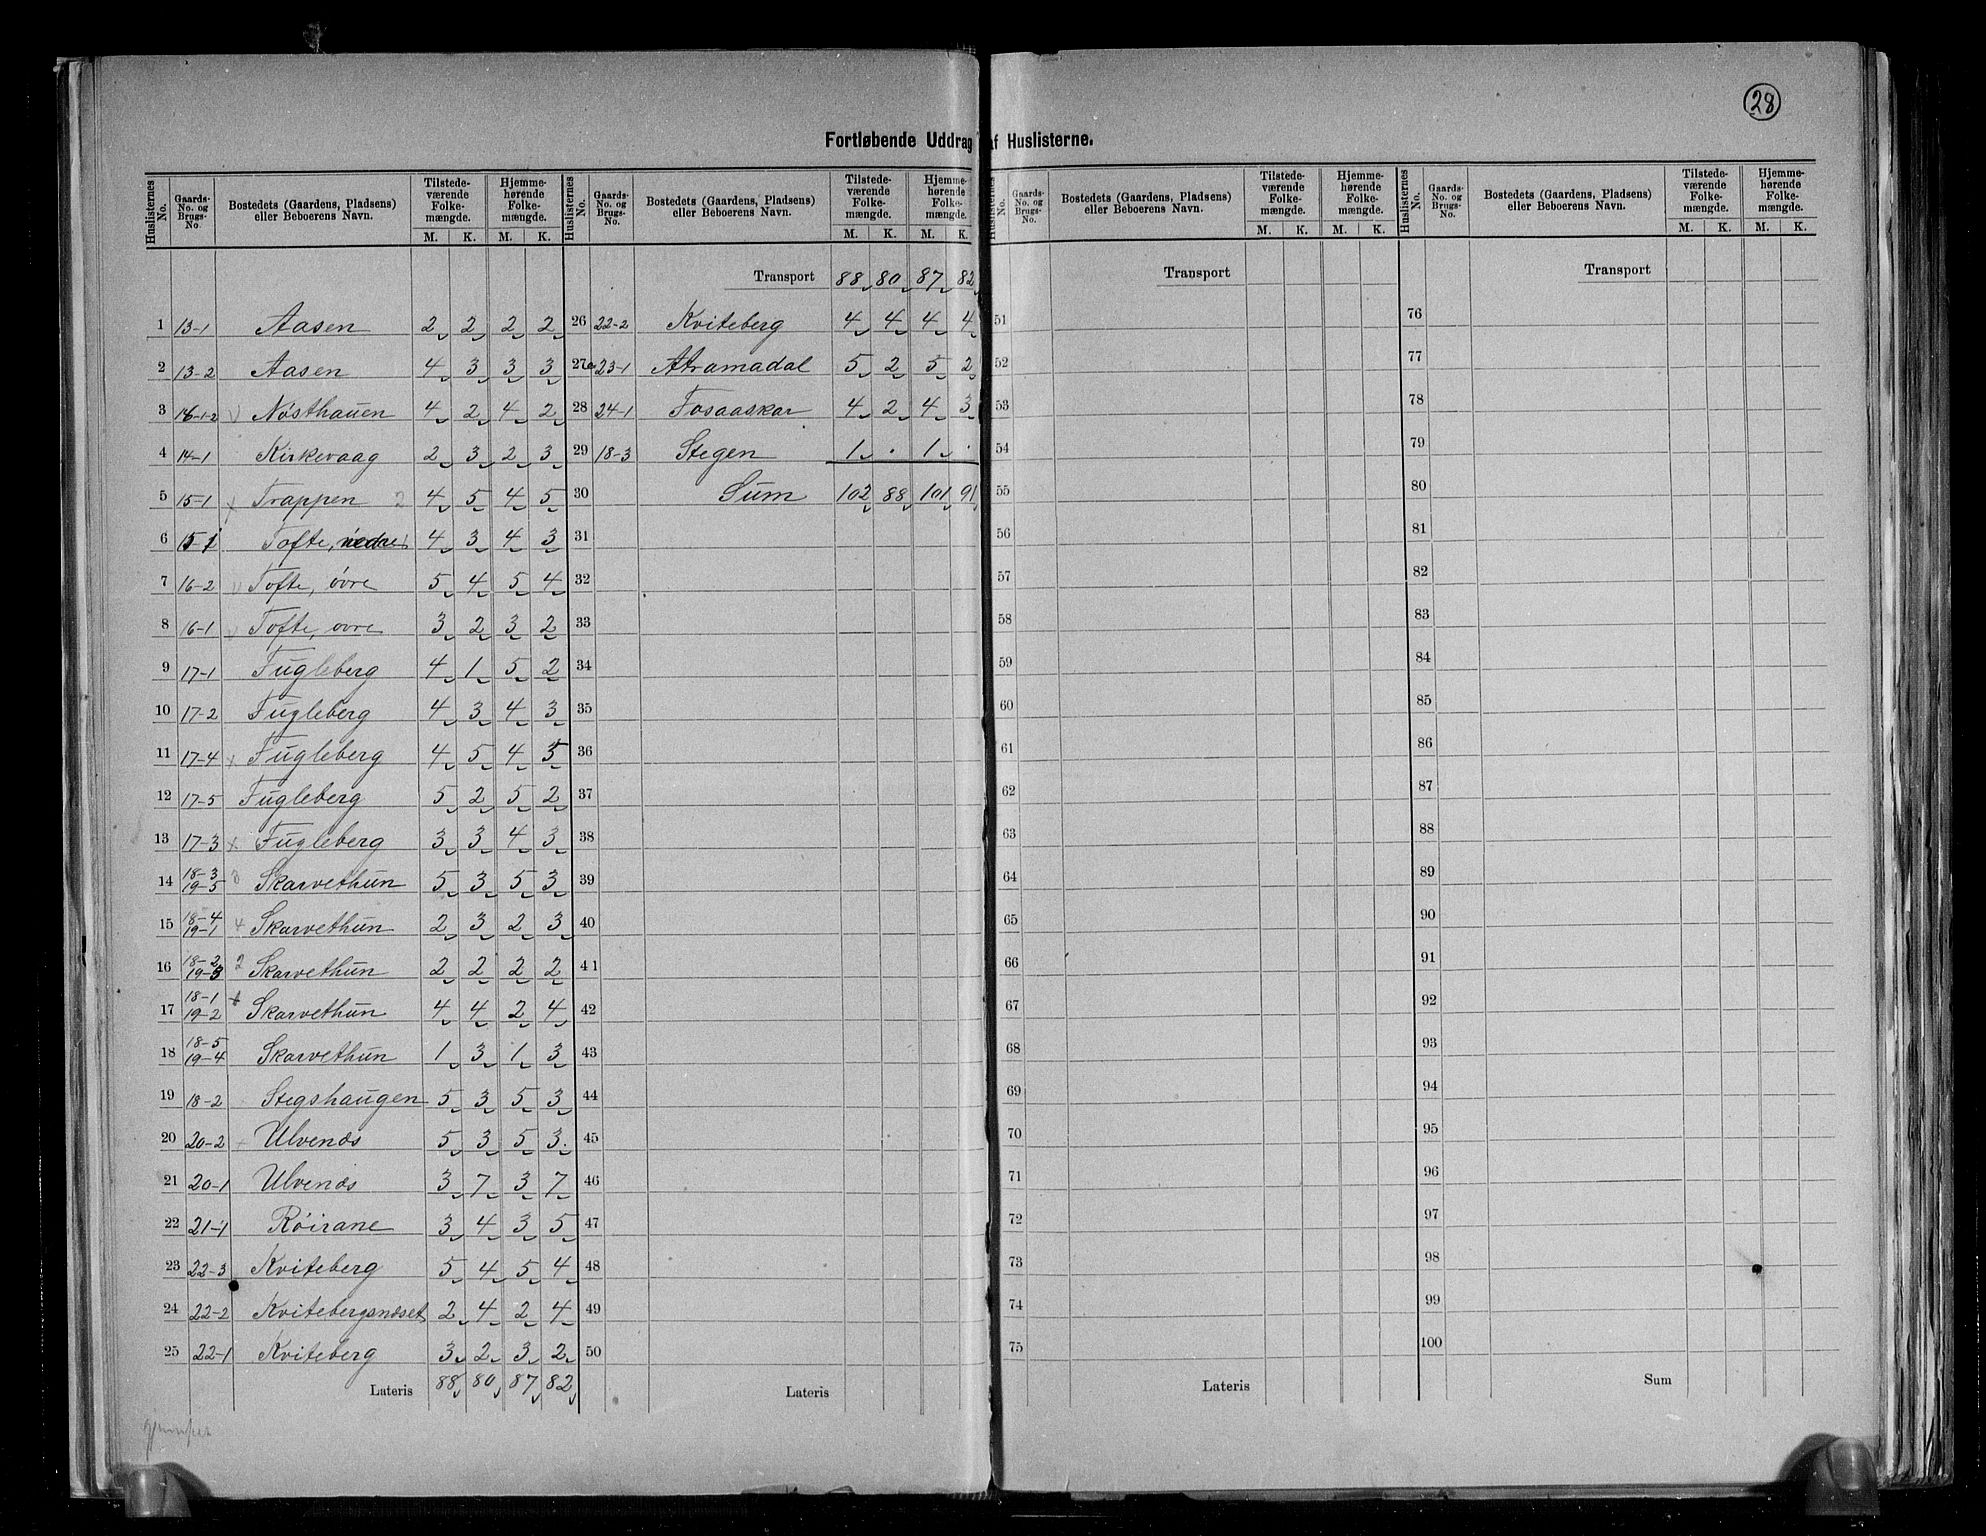 28
Fortløbende Uddrag af Huslisterne.
Huslisternes No. | Gaards-No. og Brugs-No. | Bostedets (Gaardens, Pladsens) eller Beboerens Navn. | Tilstedeværende Folkemængde. M. K. | Hjemmehørende Folkemængde. M. K.
1 13-1 Aasen 2 2 2 2
2 13-2 Aasen 4 3 3 3
3 16-1-2 Nøsthauen 4 2 4 2
4 14-1 Kirkevaag 2 3 2 3
5 15-1 Trappen 2 4 5 4 5
6 15-1 Tofte, nedre 4 3 4 3
7 16-2 Tofte, övre 5 4 5 4
8 16-1 Tofte, ovre 3 2 3 2
9 17-1 Fugleberg 4 1 5 2
10 17-2 Fugleberg 4 3 4 3
11 17-4 x Fugleberg 4 5 4 5
12 17-5 Fugleberg 5 2 5 2
13 17-3 x Fugleberg 3 3 4 3
14 18-3 19-5 3 Skarvethun 5 3 5 3
15 18-4 19-1 4 Skarvethun 2 3 2 3
16 18-2 19-3 2 Skarvethun 2 2 2 2
17 18-1 19-2 Skarvethun 4 4 2 4
18 18-5 19-4 Skarvethun 1 3 1 3
19 18-2 Stegshaugen 5 3 5 3
20 20-2 Ulvenæs 5 3 5 3
21 20-1 Ulvenæs 3 7 3 7
22 21-1 Röirane 3 4 3 5
23 22-3 Kviteberg 5 4 5 4
24 22-2 Kvitebergsnæset 2 4 2 4
25 22-1 Kviteberg 3 2 3 2
Lateris 88 80 87 82
Huslisternes No. | Gaards-No. og Brugs-No. | Bostedets (Gaardens, Pladsens) eller Beboerens Navn. | Tilstedeværende Folkemængde. M. K. | Hjemmehørende Folkemængde. M. K.
Transport 88 80 87 82
26 22-2 Kviteberg 4 4 4 4
27 23-1 Atramadal 5 2 5 2
28 24-1 Fosaaskar 4 2 4 3
29 18-3 Stegen 1 . 1 .
30 Sum 102 88 101 91
31
32
33
34
35
36
37
38
39
40
41
42
43
44
45
46
47
48
49
50
Lateris
Huslisternes No. | Gaards-No. og Brugs-No. | Bostedets (Gaardens, Pladsens) eller Beboerens Navn. | Tilstedeværende Folkemængde. M. K. | Hjemmehørende Folkemængde. M. K.
Transport
51
52
53
54
55
56
57
58
59
60
61
62
63
64
65
66
67
68
69
70
71
72
73
74
75
Lateris
Huslisternes No. | Gaards-No. og Brugs-No. | Bostedets (Gaardens, Pladsens) eller Beboerens Navn. | Tilstedeværende Folkemængde. M. K. | Hjemmehørende Folkemængde. M. K.
Transport
76
77
78
79
80
81
82
83
84
85
86
87
88
89
90
91
92
93
94
95
96
97
98
99
100
Sum